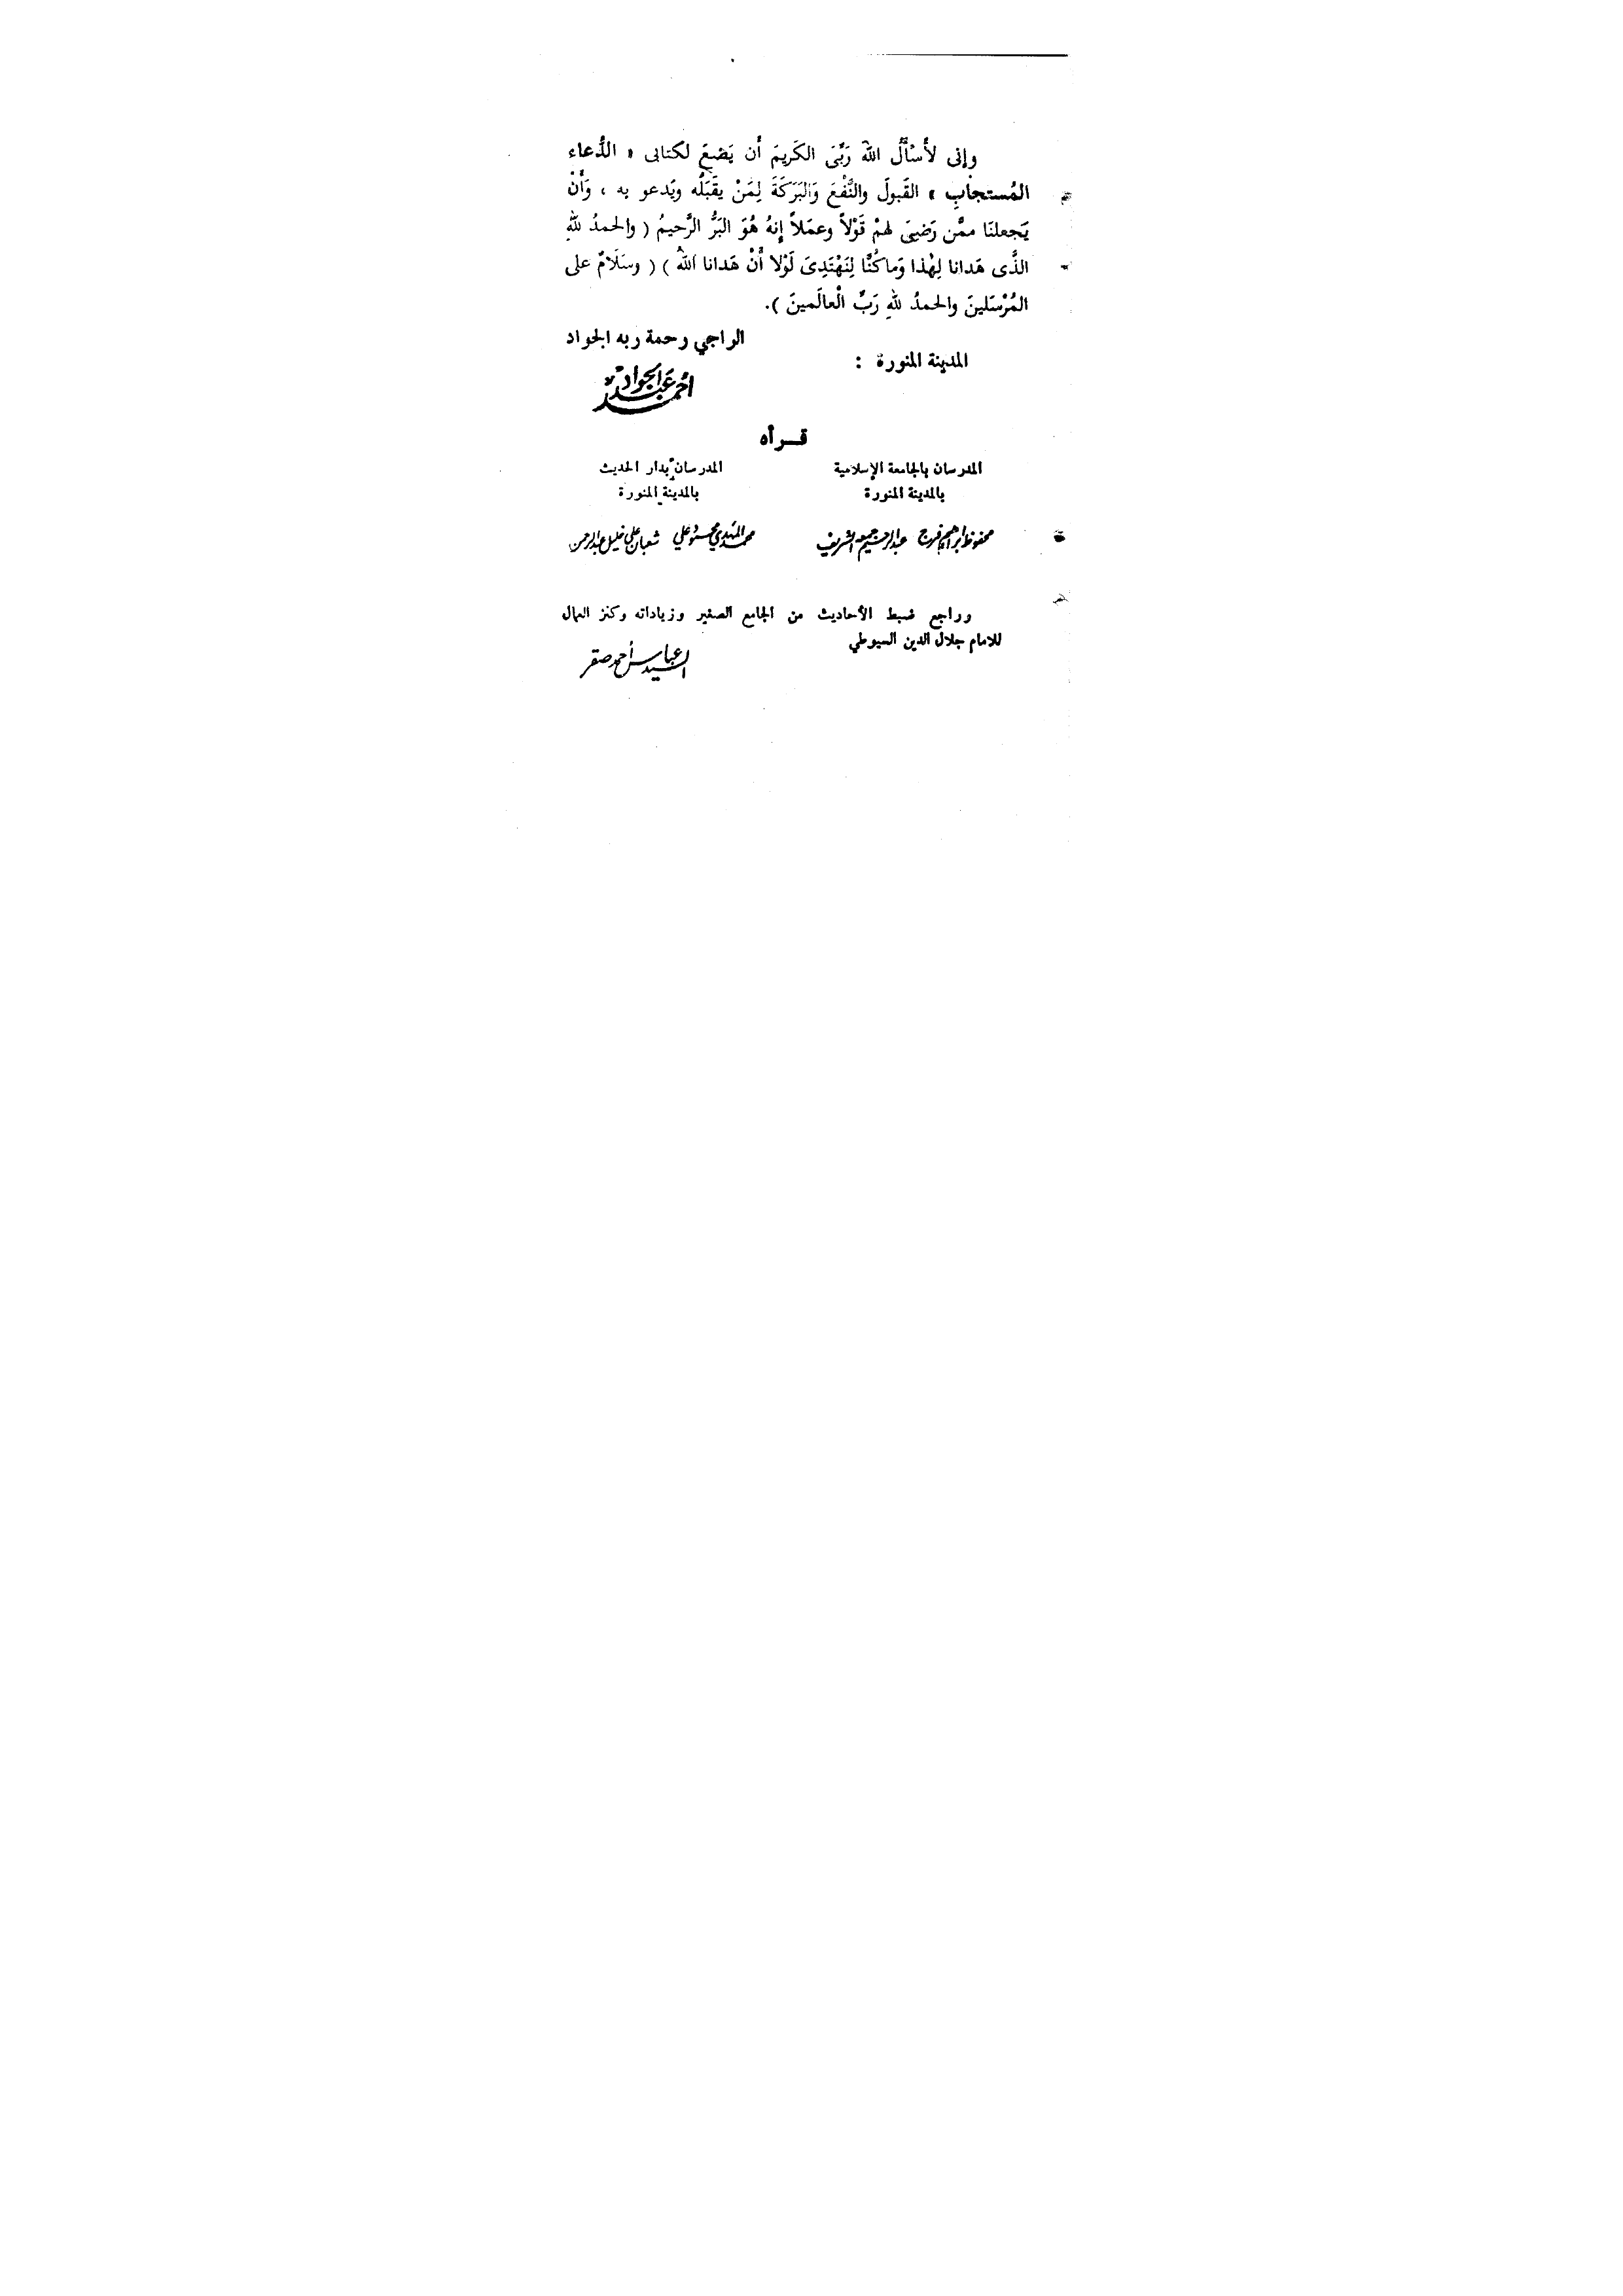 وإنى لأَسْأَلُ اللهَ رَبِّىَ الكَريمَ أن يَضعَ لكتابى « الدُّعاء
المُستجابِ » القَبولَ والنَّفْعَ وَالبَرَكَةَ لِمَنْ يقَبَلُه ويَدعو به ، وَأَنْ
يَجعلنَا ممَّن رَضىَ لهمْ قَوْلاً وعمَلاً إنهُ هُوَ البَرُّ الرَّحيمُ ( والحمدُ للهِ
الذَّى هَدانا لِهٰذا وَماكُنَّا لِنَهْتَدِىَ لَوْلا أَنْ هَدانا اللهُ ) ( وسَلَامٌ على
المُرْسَلينَ والحمدُ للهِ رَبِّ الْعالَمينَ ).
الراجي رحمة ربه الجواد
المدينة المنورة :
أحمد عبد الجواد
قــرأه
المدرسان بالجامعة الإسلامية
بالمدينة المنورة
المدرسان بدار الحديث
بالمدينة المنورة
محفوظ ابراهيم فرج عبد الرحيم جمعه الشريف
محمد المهدي محمود علي شعبان علي خليل عبد الرحمن
وراجع ضبط الأحاديث من الجامع الصغير وزياداته وكنز العمال
للامام جلال الدين السيوطي
السيد عباس أحمد صقر